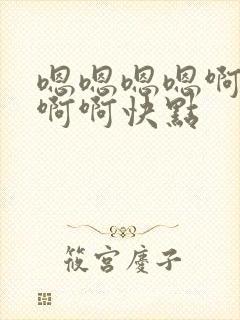 嗯嗯嗯嗯啊
啊啊快點
筱宮慶子